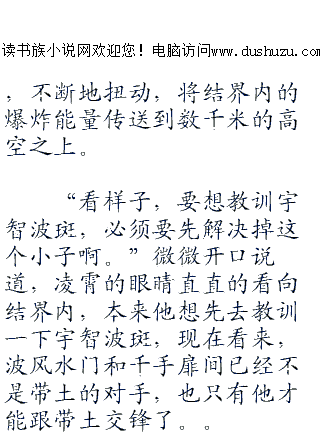 读书族小说网欢迎您！电脑访问www.dushuzu.com
，不断地扭动，将结界内的
爆炸能量传送到数千米的高
空之上。
“看样子，要想教训宇
智波斑，必须要先解决掉这
个小子啊。”微微开口说
道，凌霄的眼睛直直的看向
结界内，本来他想先去教训
一下宇智波斑，现在看来，
波风水门和千手扉间已经不
是带土的对手，也只有他才
能跟带土交锋了。。